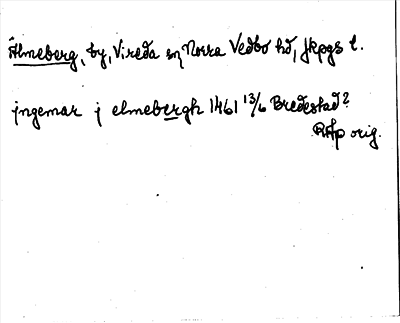 Älmeberg, by, Vireda sn Norra Vedbo hd, Jkpgs l.
jngemar j elmebergh 1461 13/6 Bredestad?
RAp orig.